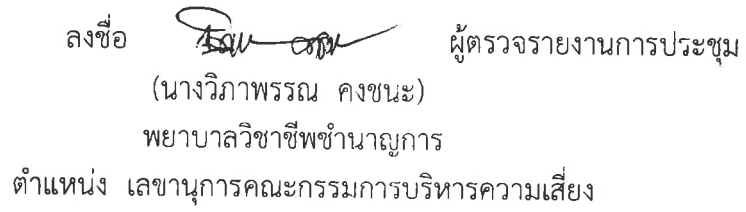 ลงชื่อ ผู้ตรวจรายงานการประชุม
(นางวิภาพรรณ คงชนะ)
พยาบาลวิชาชีพชำนาญการ
ตำแหน่ง เลขานุการคณะกรรมการบริหารความเสี่ยง